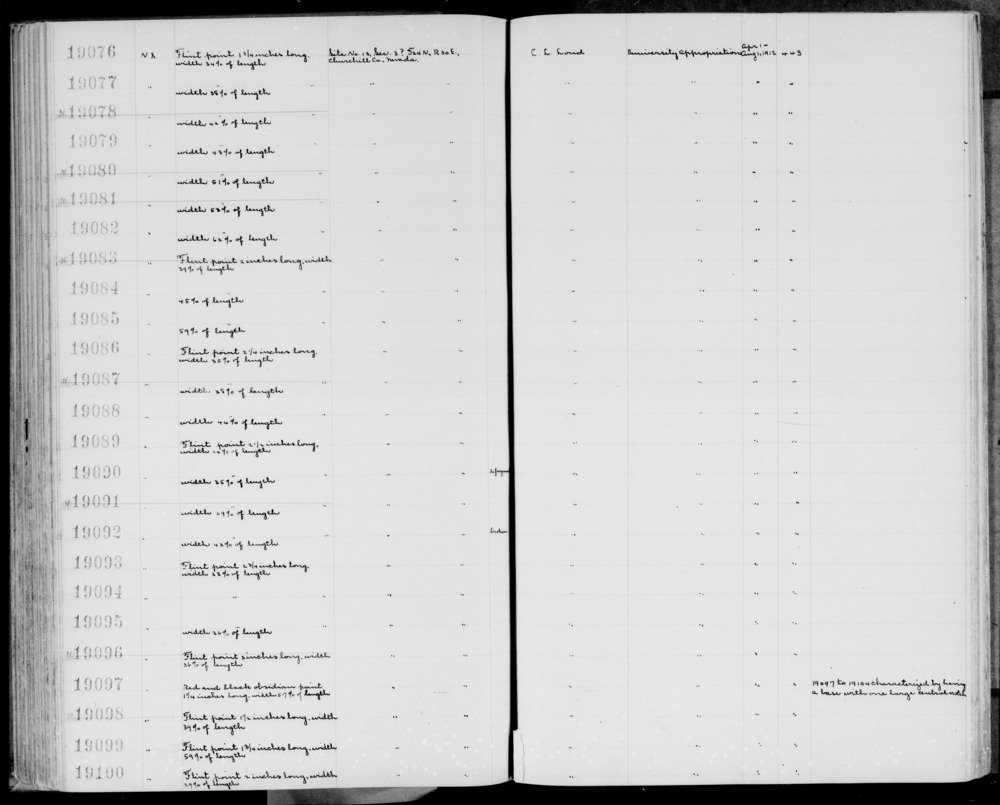 19076 N X Flint point 1 3/4 inches long, Site No. 13, Sec. 3? T24 N, R 30 E, C. L. Loud University appropriation Apr 1 –
width 34% of length Churchill Co. Nevada. Aug 1, 1912 443
19077 " width 35% of length " " " " " "
19078 " width 42% of length " " " " " "
19079 " width 43% of length " " " " " "
19080 " width 51% of length " " " " " "
19081 " width 53% of length " " " " " "
19082 " width 62% of length " " " " " "
19083 " Flint point 2 inches long, width " " " " " "
of length
19084 " 45% of length " " " " " "
19085 " 59% of length " " " " " "
19086 " Flint point 2 1/4 inches long, " " " " " "
width 35% of length
19087 " width 35% of length " " " " " "
19088 " width 44% of length " " " " " "
19089 " Flint point 2 1/2 inches long, " " " " " "
width of length
19090 " width 35% of length " " " " " "
19091 " width of length " " " " " "
19092 " width 43% of length " " broken " " " "
19093 " Flint point 2 3/4 inches long, " " " " " "
width 33% of length
19094 " " " " " " " "
19095 " width 36% of length " " " " " "
19096 " Flint point 3 inches long, width " " " " " "
36% of length
19097 " Red and black obsidian point, " " " " " " 19097 to 19104 characterized by having
1 1/4 inches long, width 57% of length a base with one large central notch
19098 " Flint point 1 1/2 inches long, width " " " " " "
39% of length
19099 " Flint point 1 3/4 inches long, width " " " " " "
59% of length
19100 " Flint point 2 inches long, width " " " " " "
of length